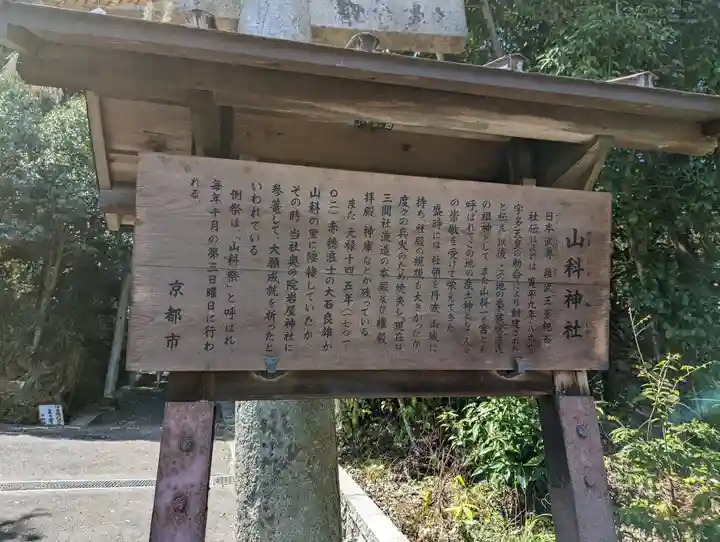 山科神社
日本武尊、稚武王を祀る。
社伝によれば、寛平九年(八九七)
宇多天皇の勅命により創建された
と伝え、以後、この地の豪族宮道氏
の祖神として、また山科一宮とも
呼ばれて、この地の産土神として人々
の崇敬を受けて栄えてきた。
盛時には、社領を丹波、山城に
持ち、社殿の規模も大きかったが
度々の兵火のため焼失し、現在は
三間社流造の本殿及び権殿
拝殿、神庫などが残っている。
また、元禄十四、五年(一七〇一、
〇二)赤穂浪士の大石良雄が
山科の里に隠棲していたが、
その時、当社奥の院岩屋神社に
参篭して、大願成就を祈ったと
いわれている。
例祭は、「山科祭」と呼ばれ
毎年十月の第二日曜日に行わ
れる。
京都市